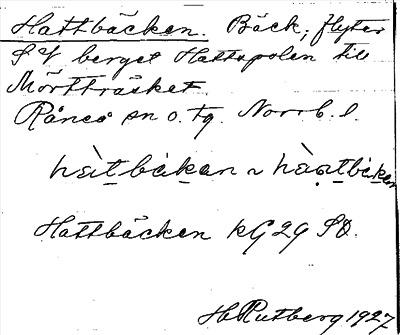 Hattbäcken. Bäck; flyter
S of berget Hattspolen till
Mörtträsket.
Råneå sn o. tg. Norrb. l.
hàt̠bàk̠en ~ hàat̠bàken
Hattbäcken kG 29 SO.
H Rutberg 1927